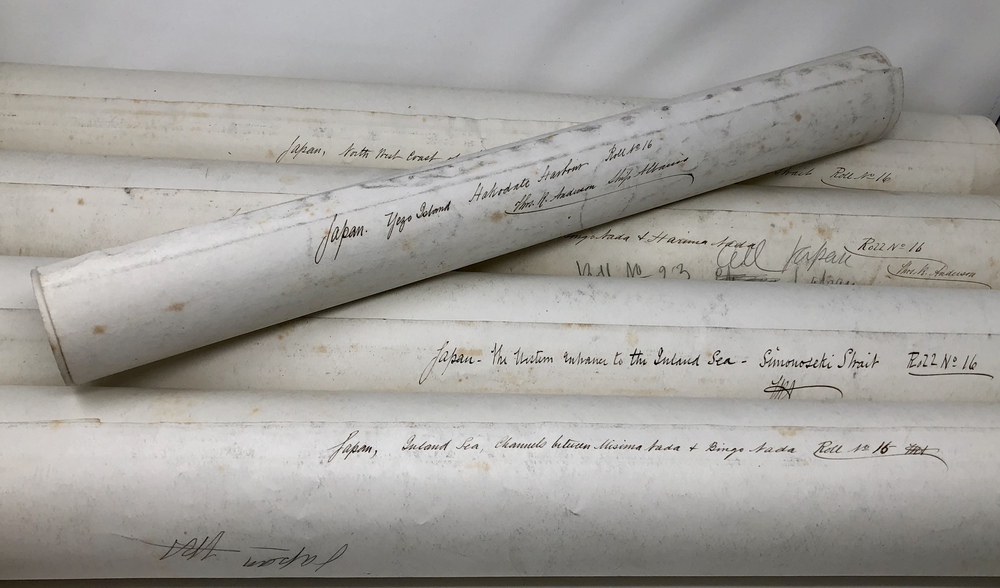 Japan, North West Coast
Strait Roll No 16
Japan. Yezo Island Hakodate Harbour Roll No 16
Thos. R. Anderson Ship Albania
Nada & Harima Nada Roll No 16
All Japan Thos. R. Anderson
Roll No 93 Japan
Japan - The Western Entrance to the Inland Sea - Simonoseki Strait Roll No 16
Japan, Inland Sea, Channels between Misima Nada & Bingo Nada Roll No 16
Japan